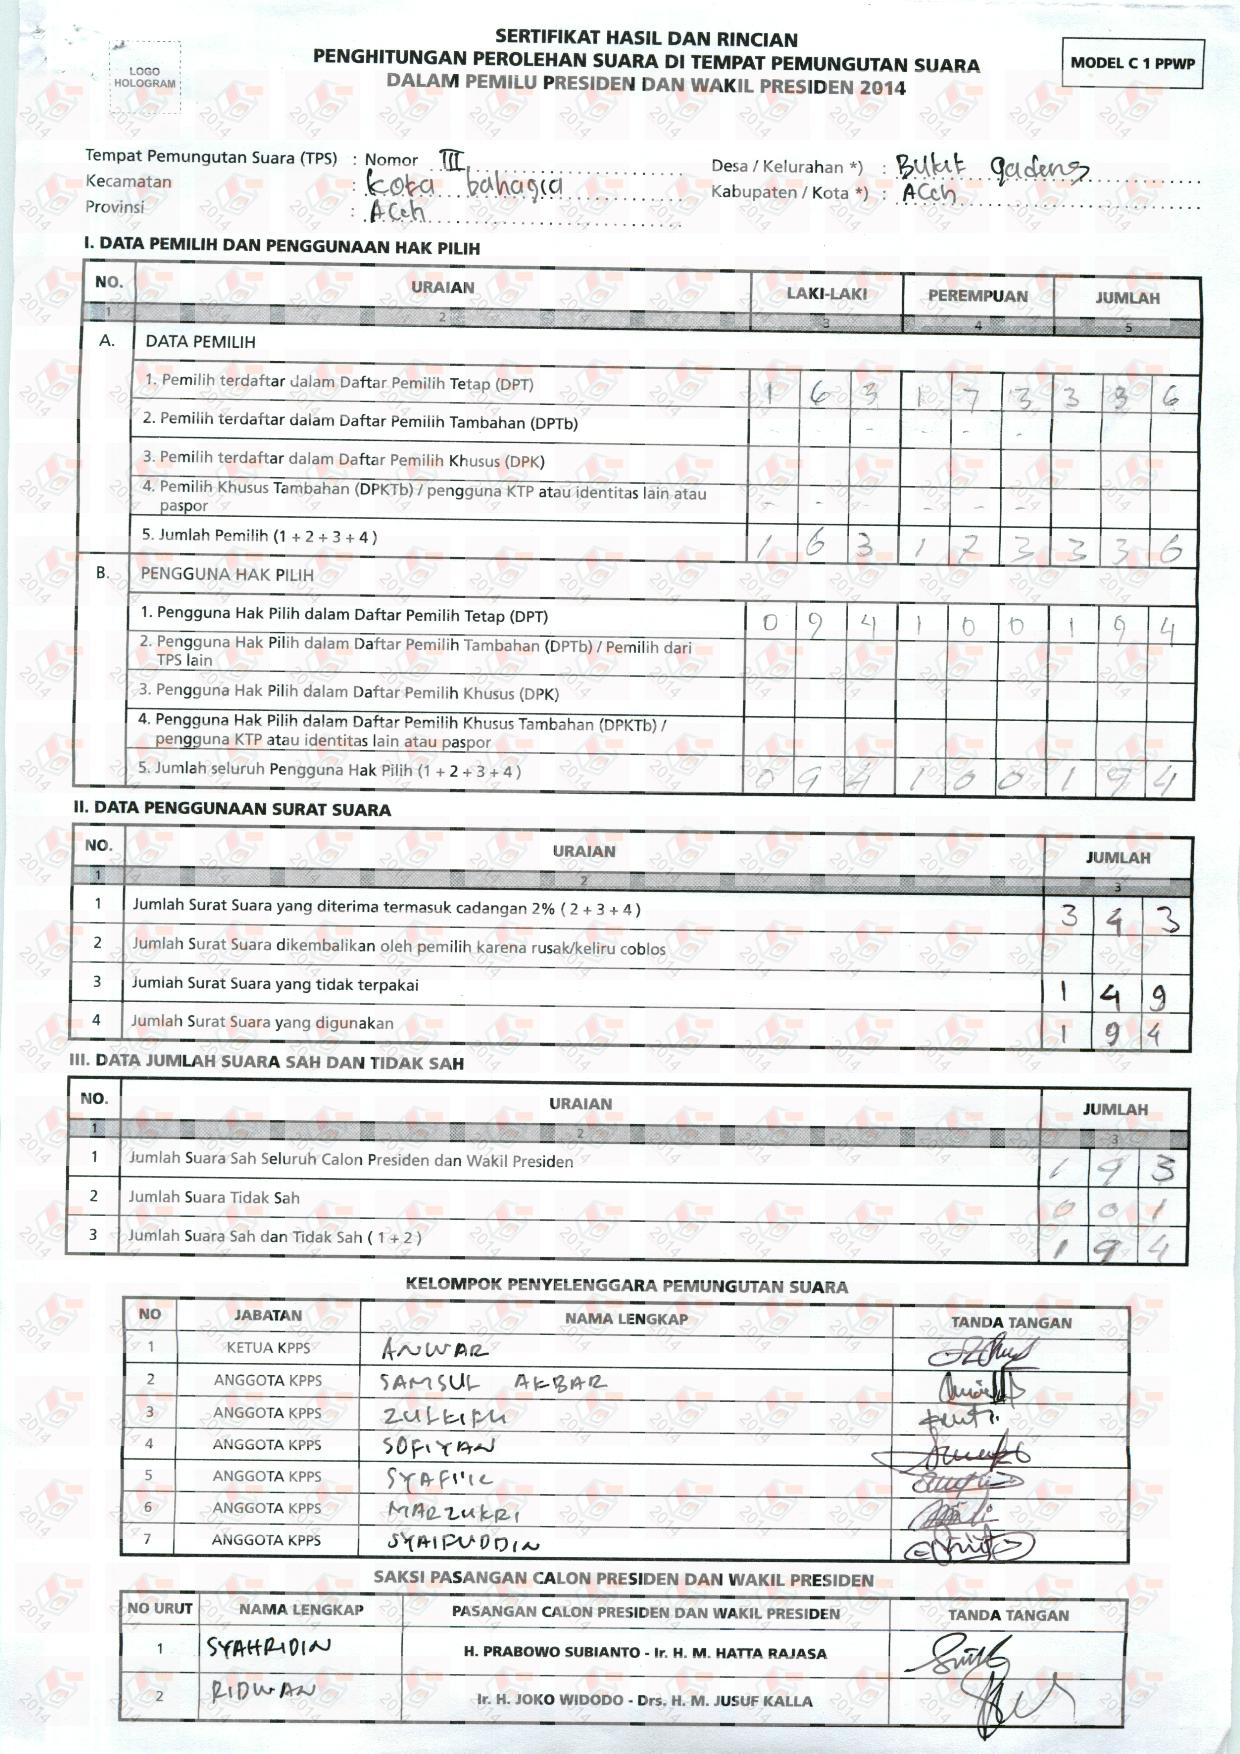 SERTIFIKAT HASIL DAN RINCIAN
PENGHITUNGAN PEROLEHAN SUARA DI TEMPAT PEMUNGUTAN SUARA
DALAM PEMILU PRESIDEN DAN WAKIL PRESIDEN 2014
LOGO
HOLOGRAM
MODEL C 1 PPWP
Tempat Pemungutan Suara (TPS) : Nomor III
Desa / Kelurahan *) : Bukit gadeng
Kecamatan : kota bahagia
Kabupaten / Kota *) : ACeh
Provinsi : ACeh
I. DATA PEMILIH DAN PENGGUNAAN HAK PILIH
NO. URAIAN LAKI-LAKI PEREMPUAN JUMLAH
1 2 3 4 5
A. DATA PEMILIH
1. Pemilih terdaftar dalam Daftar Pemilih Tetap (DPT) 1 6 3 1 7 3 3 3 6
2. Pemilih terdaftar dalam Daftar Pemilih Tambahan (DPTb) - - - - -
3. Pemilih terdaftar dalam Daftar Pemilih Khusus (DPK)
4. Pemilih Khusus Tambahan (DPKTb) / pengguna KTP atau identitas lain atau
paspor - - - - -
5. Jumlah Pemilih (1 + 2 + 3 + 4 ) 1 6 3 1 7 3 3 3 6
B. PENGGUNA HAK PILIH
1. Pengguna Hak Pilih dalam Daftar Pemilih Tetap (DPT) 0 9 4 1 0 0 1 9 4
2. Pengguna Hak Pilih dalam Daftar Pemilih Tambahan (DPTb) / Pemilih dari
TPS lain
3. Pengguna Hak Pilih dalam Daftar Pemilih Khusus (DPK)
4. Pengguna Hak Pilih dalam Daftar Pemilih Khusus Tambahan (DPKTb) /
pengguna KTP atau identitas lain atau paspor
5. Jumlah seluruh Pengguna Hak Pilih (1 + 2 + 3 + 4 ) 0 9 4 1 0 0 1 9 4
II. DATA PENGGUNAAN SURAT SUARA
NO. URAIAN JUMLAH
1 2 3
1 Jumlah Surat Suara yang diterima termasuk cadangan 2% ( 2 + 3 + 4 ) 3 4 3
2 Jumlah Surat Suara dikembalikan oleh pemilih karena rusak/keliru coblos
3 Jumlah Surat Suara yang tidak terpakai 1 4 9
4 Jumlah Surat Suara yang digunakan 1 9 4
III. DATA JUMLAH SUARA SAH DAN TIDAK SAH
NO. URAIAN JUMLAH
1 2 3
1 Jumlah Suara Sah Seluruh Calon Presiden dan Wakil Presiden 1 9 3
2 Jumlah Suara Tidak Sah 0 0 1
3 Jumlah Suara Sah dan Tidak Sah ( 1 + 2 ) 1 9 4
KELOMPOK PENYELENGGARA PEMUNGUTAN SUARA
NO JABATAN NAMA LENGKAP TANDA TANGAN
1 KETUA KPPS ANWAR
2 ANGGOTA KPPS SAMSUL AKBAR
3 ANGGOTA KPPS ZULKIFLI
4 ANGGOTA KPPS SOFIYAN
5 ANGGOTA KPPS
6 ANGGOTA KPPS MARZUKRI
7 ANGGOTA KPPS SYAIFUDDIN
SAKSI PASANGAN CALON PRESIDEN DAN WAKIL PRESIDEN
NO URUT NAMA LENGKAP PASANGAN CALON PRESIDEN DAN WAKIL PRESIDEN TANDA TANGAN
1 SYAHRIDIN H. PRABOWO SUBIANTO - Ir. H. M. HATTA RAJASA
2 RIDWAN Ir. H. JOKO WIDODO - Drs. H. M. JUSUF KALLA